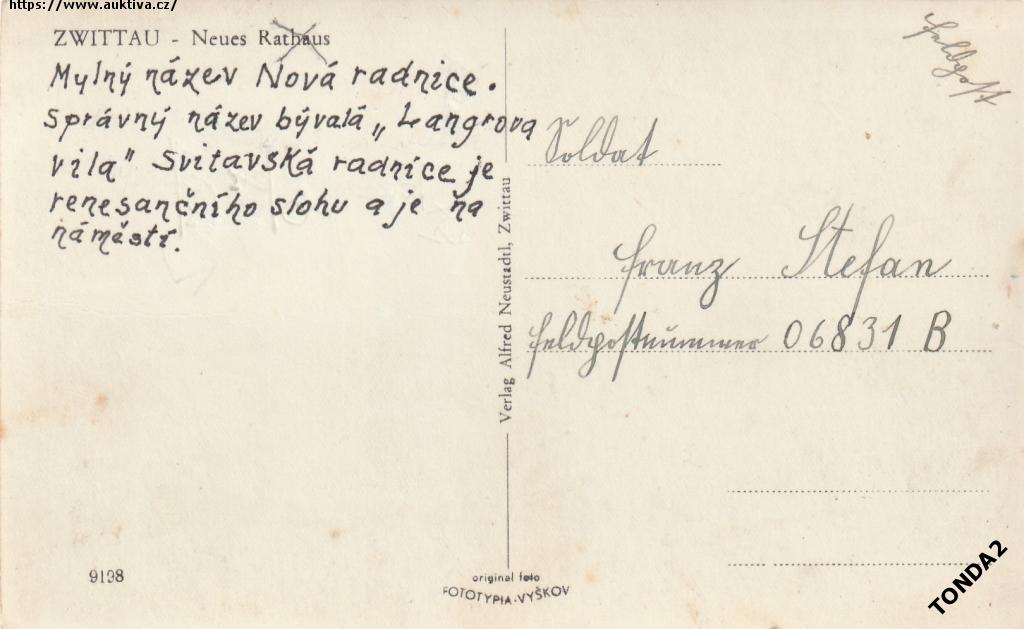 https://www.auktiva.cz/
ZWITTAU - Neues Rathaus
Mylný název Nová radnice.
Správný název bývalá „Langrova
vila" Svitavská radnice je
renesančního slohu a je na
náměstí.
Feldpost
Soldat
Franz Stefan
Feldpostnummer 06831 B
Verlag Alfred Neustadtl, Zwittau
9198
original foto
FOTOTYPIA-VYŠKOV
TONDA2